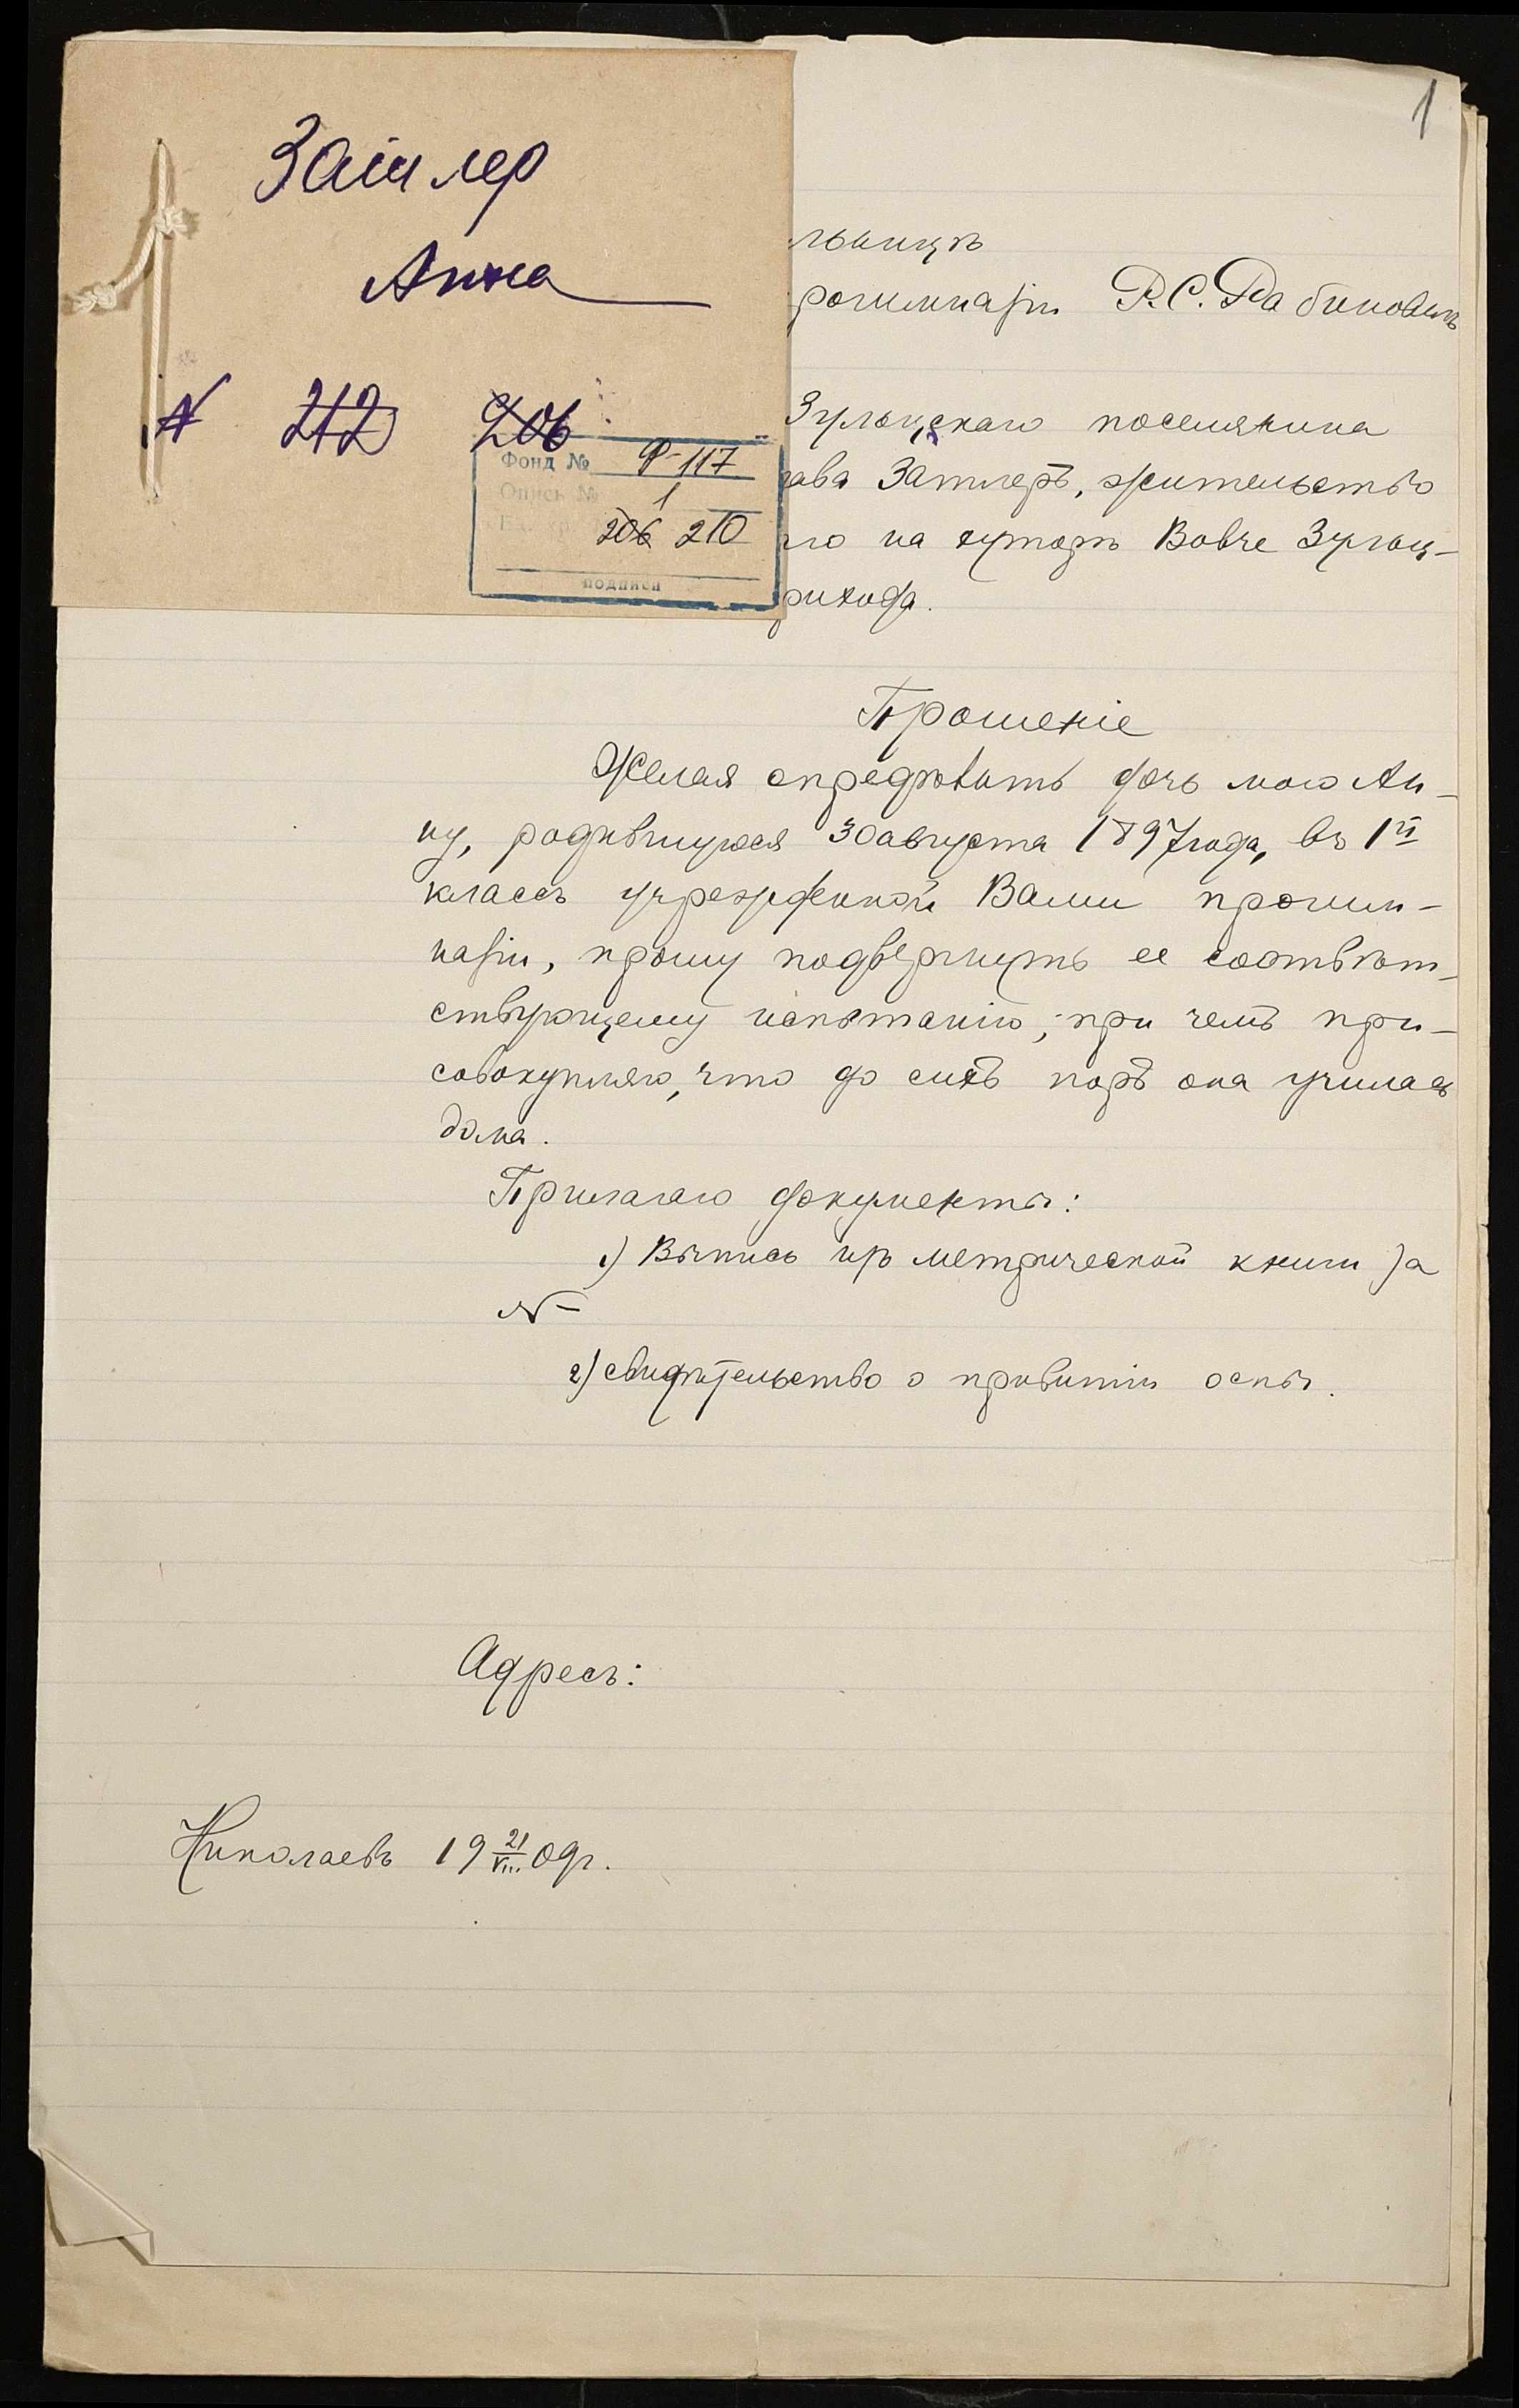 1
Затлер
Анна
№ 212 206
Фонд № Ф-117
Опись № 1
206 210
подписи
льницѣ
рогимназіи Р. С. Рабиновичъ
Зульцскаго поселянина
ава Затлеръ, жительство
го на хуторѣ Вовче Зульц-
рихода.
Прошеніе
Желая опредѣлить дочь мою Ан-
ну, родившуюся 30 августа 1897 года, въ 1й
классъ учрежденной Вами прогим-
назіи, прошу подвергнуть ее соотвѣт-
ствующему испытанію, при чемъ при-
совокупляю, что до сихъ поръ она училась
дома.
Прилагаю документы:
1) Выпись изъ метрической книги за
№ –
2) свидѣтельство о привитіи оспы.
Адресъ:
Николаевъ 19 21/VIII 09 г.